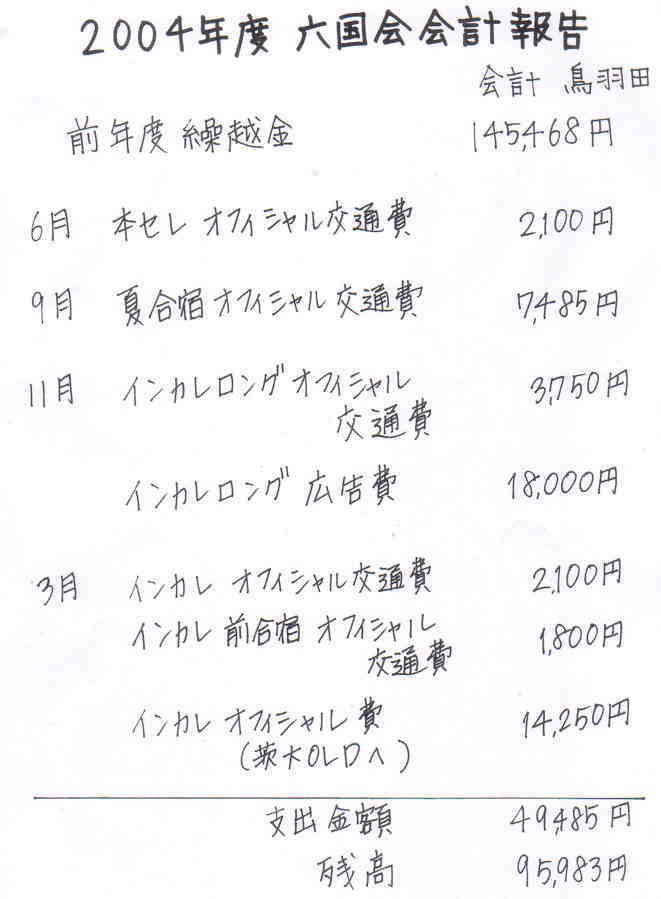 2004年度 六国会会計報告
会計 鳥羽田
前年度繰越金 145,468円
6月 本セレ オフィシャル交通費 2,100円
9月 夏合宿オフィシャル交通費 7,485円
11月 インカレロングオフィシャル 3,750円
交通費
インカレロング 広告費 18,000円
3月 インカレ オフィシャル交通費 2,100円
インカレ前合宿オフィシャル 1,800円
交通費
インカレ オフィシャル費 14,250円
(茨大OLDへ)
支出金額 49,485円
残高 95,983円